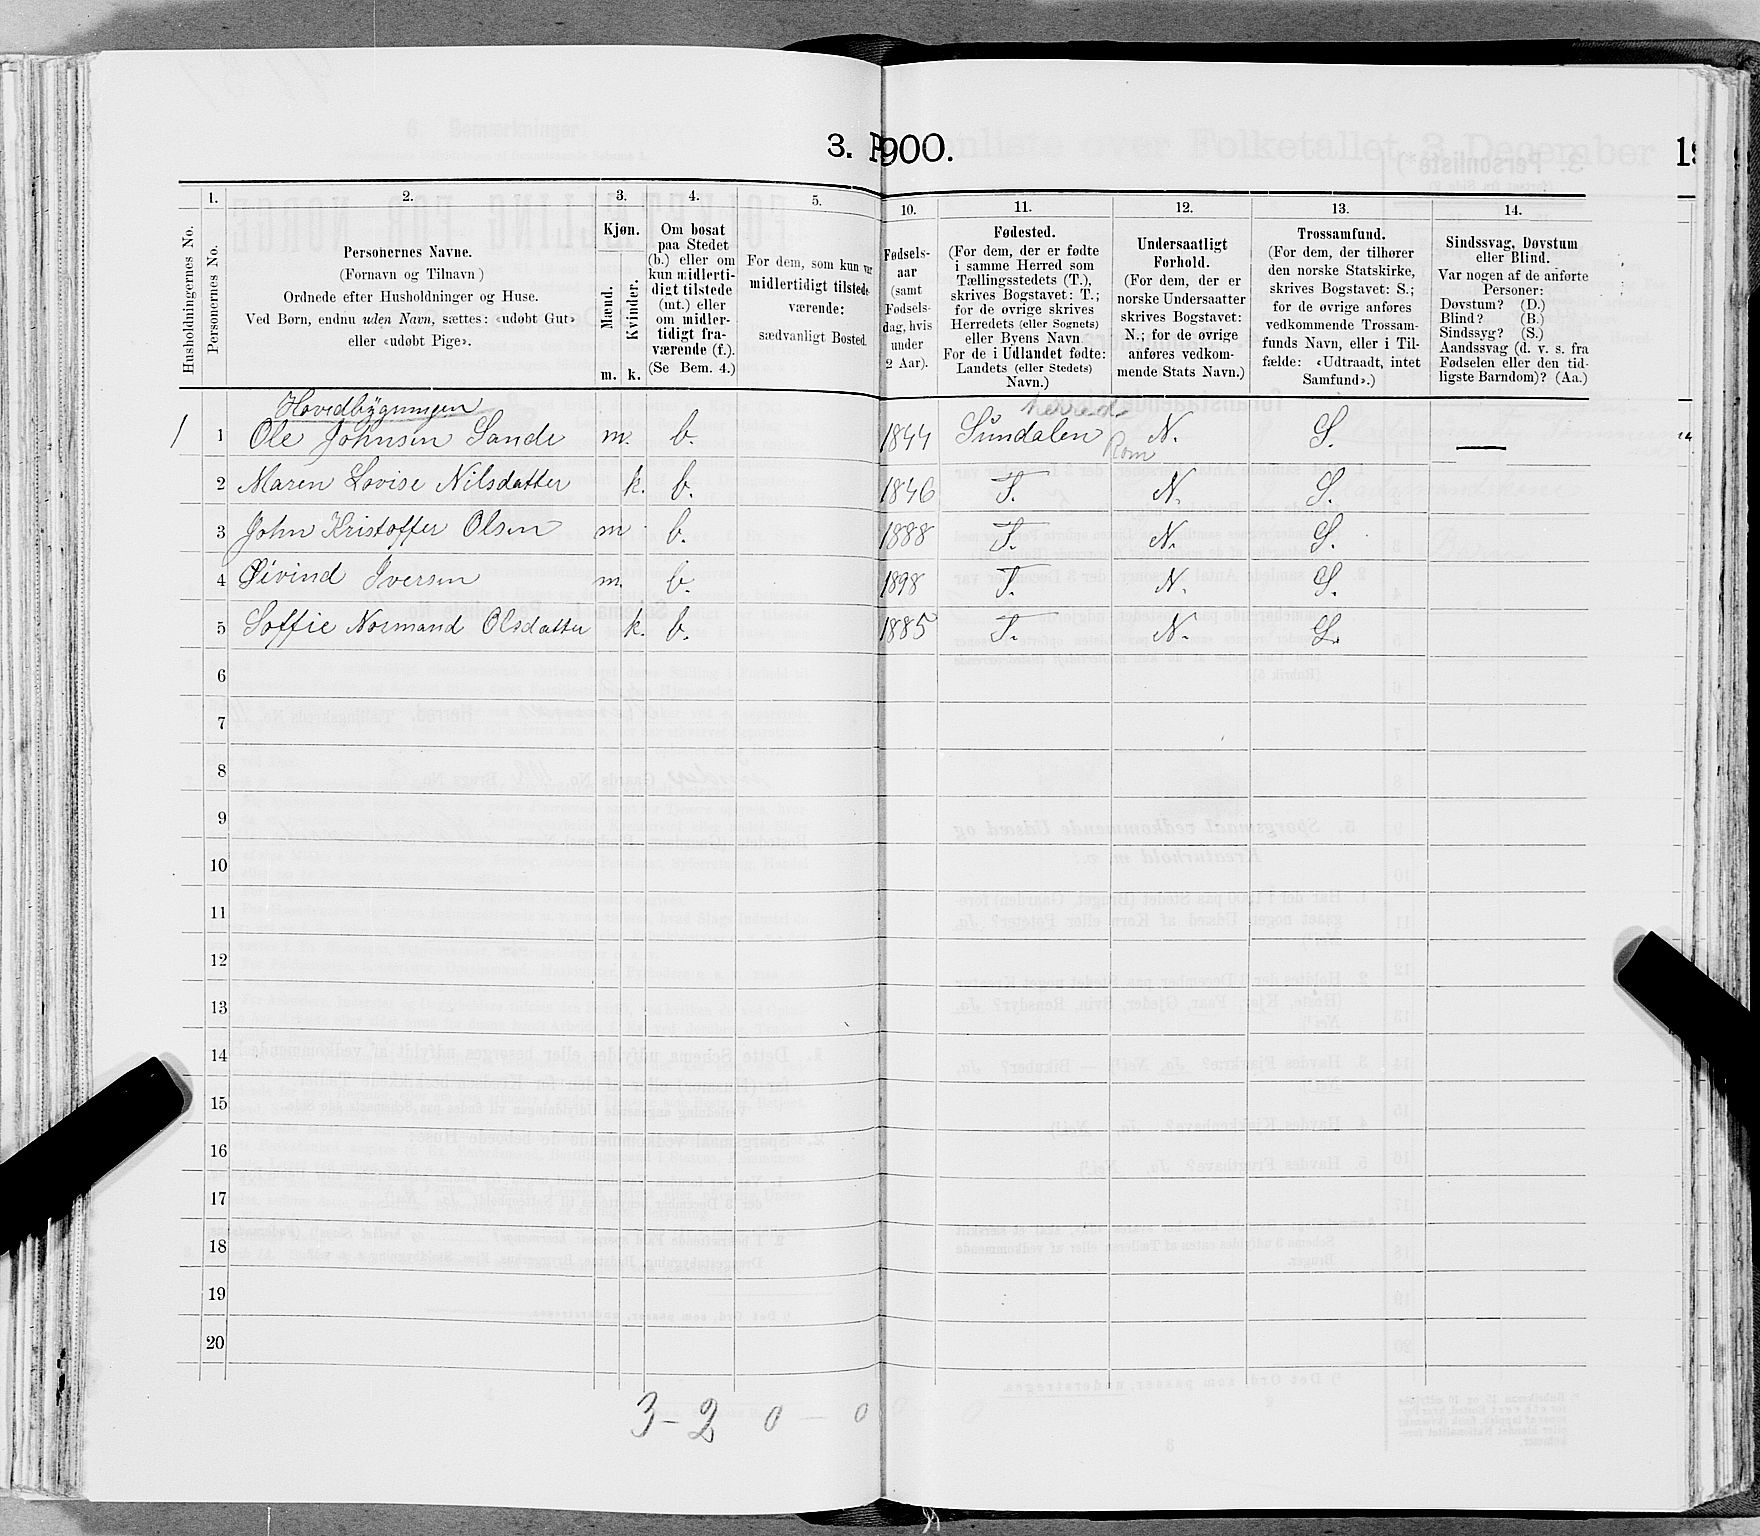 3. P900.
19
Husholdningernes No.
1.
Personernes No.
2.
Personernes Navne.
(Fornavn og Tilnavn)
Ordnede efter Husholdninger og Huse.
Ved Børn, endnu uden Navn, sættes: «udøbt Gut»
eller «udøbt Pige».
3.
Kjøn.
Mænd.
Kvinder.
m. k.
4.
Om bosat
paa Stedet
(b.) eller om
kun midlerti-
digt tilstede
(mt.) eller
om midler-
tidigt fra-
værende (f.).
(Se Bem. 4.)
5.
For dem, som kun var
midlertidigt tilstede-
værende:
sædvanligt Bosted.
10.
Fødsels-
aar
(samt
Fødsels-
dag, hvis
under
2 Aar).
11.
Fødested.
(For dem, der er fødte
i samme Herred som
Tællingsstedets (T.),
skrives Bogstavet: T.;
for de øvrige skrives
Herredets (eller Sognets)
eller Byens Navn.
For de i Udlandet fødte:
Landets (eller Stedets)
Navn.)
12.
Undersaatligt
Forhold.
(For dem, der er
norske Undersaatter
skrives Bogstavet:
N.; for de øvrige
anføres vedkom-
mende Stats Navn.)
13.
Trossamfund.
(For dem, der tilhører
den norske Statskirke,
skrives Bogstavet: S.;
for de øvrige anføres
vedkommende Trossam-
funds Navn, eller i Til-
fælde: «Udtraadt, intet
Samfund».)
14.
Sindssvag, Døvstum
eller Blind.
Var nogen af de anførte
Personer:
Døvstum? (D.)
Blind? (B.)
Sindssyg? (S.)
Aandssvag (d. v. s. fra
Fødselen eller den tid-
ligste Barndom)? (Aa.)
Hovedbygningen herred
1 1 Ole Johnsen Sande m. b. 1844 Sundalen Rom N. S. —
2 Maren Lovise Nilsdatter k. b. 1846 T. N. S.
3 John Kristoffer Olsen m b. 1888 T. N. S.
4 Øivind Iversen m. b. 1898 T. N. S.
5 Soffie Normand Olsdatter k. b. 1885 T. N. S.
6
7
8
9
10
11
12
13
14
15
16
17
18
19
20
3 - 2 0 - 0